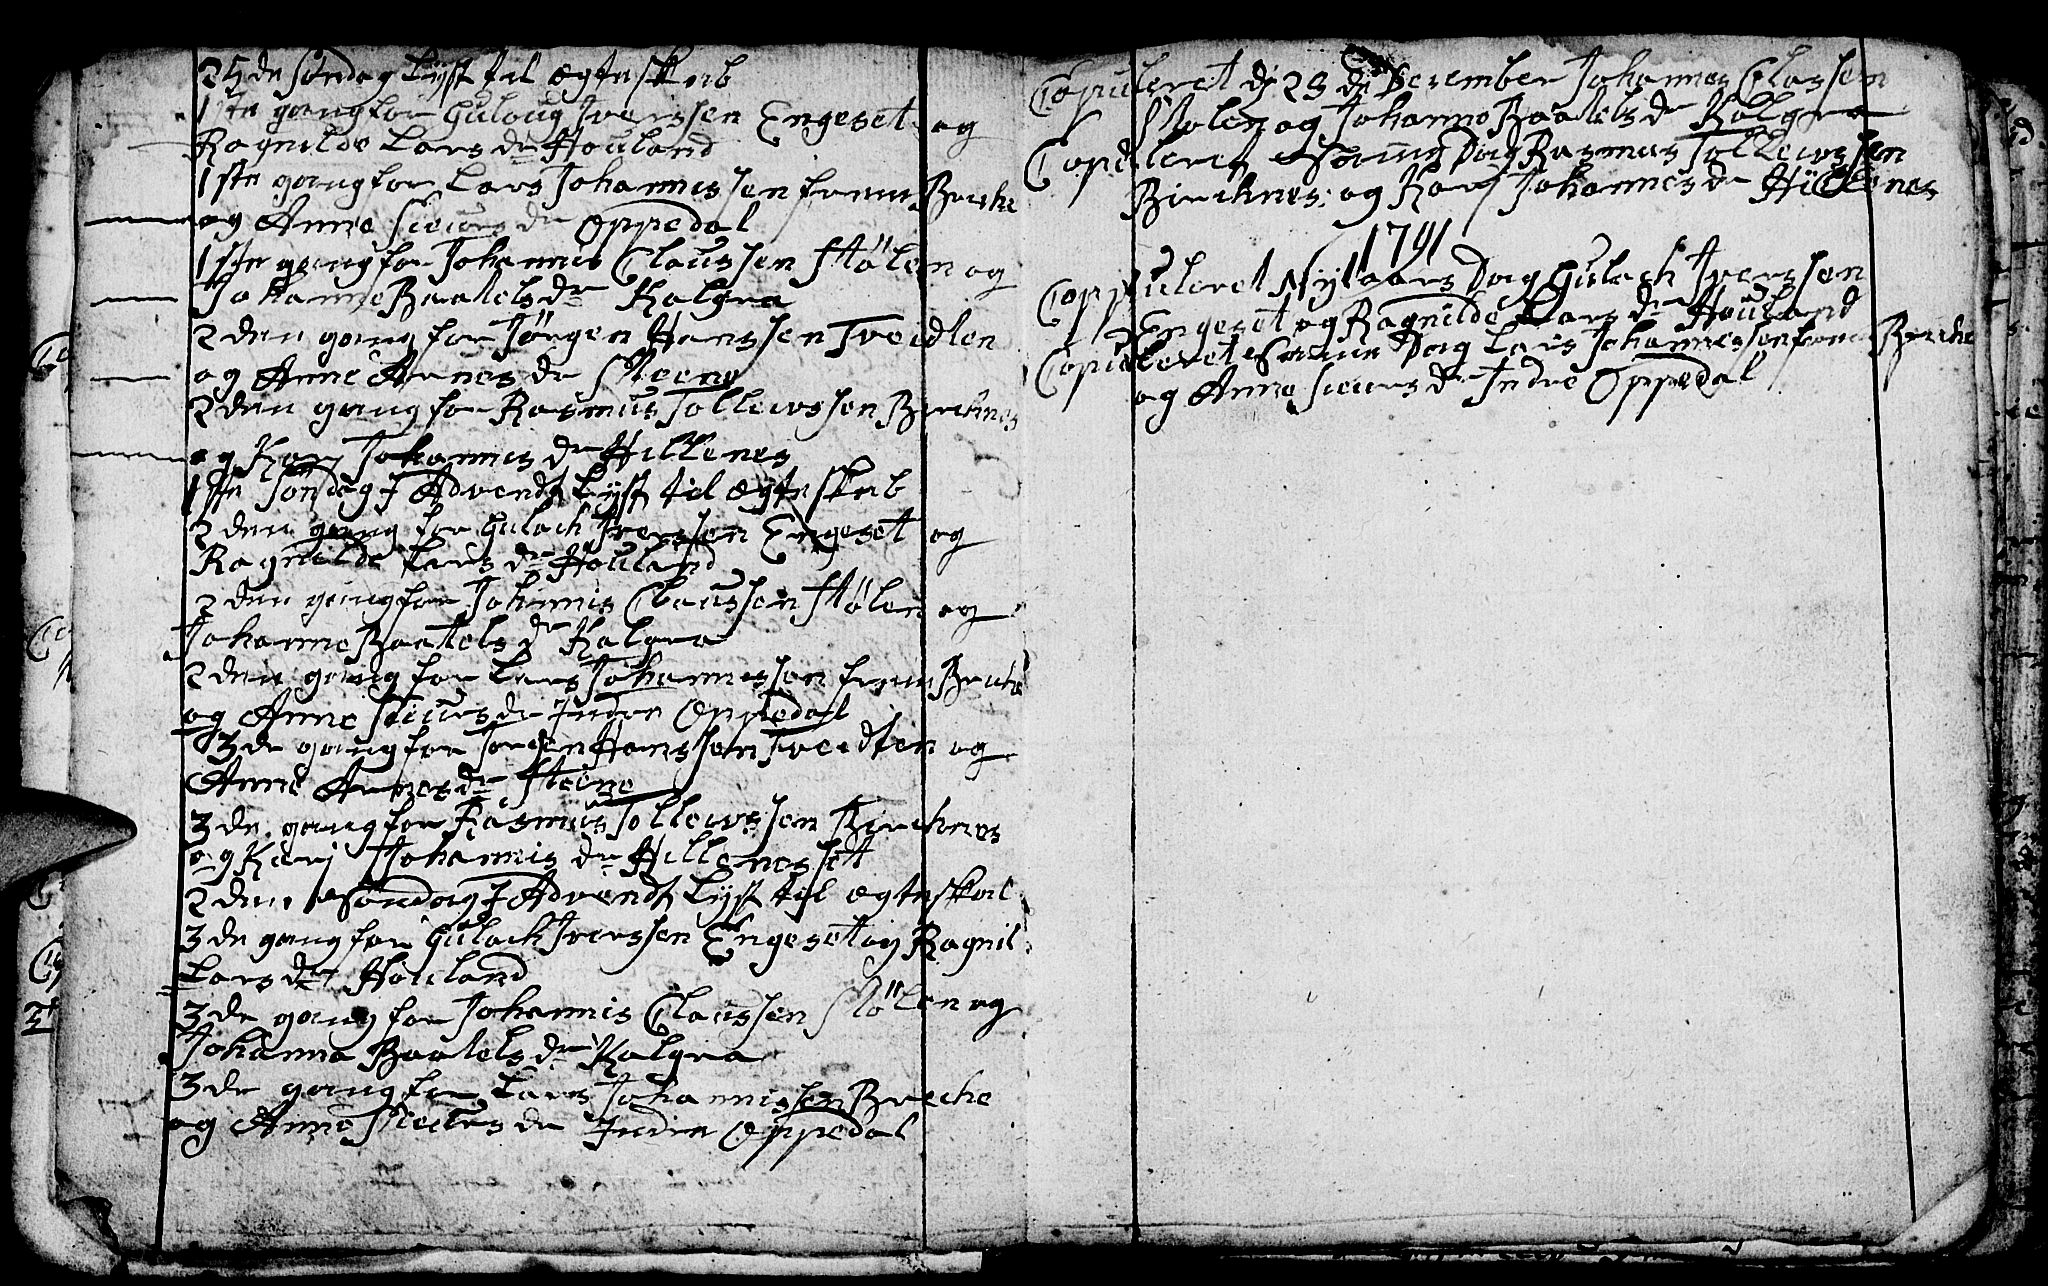 25de søndag Lyst til Ægteskab
1ste gang for Guloug Iverssen Engeset og
Ragnilde Lars dr Houland
1ste gang for Lars Johannissen frem Breche
og Anne Sieurs dr Oppedal
1ste gang for Johannis Claussen Stölen og
Johanne Baatels dr Kalgra
2den gang for Jörgen Hanssen Tveidten
og Anne Arnes dr Steene
2den gang for Rasmus Tollewssen Birchnes
og Kari Johannis dr Hillenes
1ste Søndag I Advendt Lyst til Ægteskab
2den gang for Gulach Iverssen Engeset og
Ragnilde Lars dr Houland
2den gang for Johannis Claussen Stölen og
Johanne Baatels dr Kalgra
2den gang for Lars Johannissen frem Breche
og Anne Sieurs dr Indre Oppedal
3de gang for Jorgen Hanssen Tveidten og
Anne Arnes dr Steene
3de gang for Rasmus Tollewssen Birchnes
og Kari Johannis dr Hillenessett
2den Søndag I Advendt Lyst til Ægteskab
3de gang for Gulach Iverssen Engeset og Ragnil
Lars dr Houland
3de gang for Johannis Claussen Stölen og
Johanna Baatels dr Kalgra
3de gang for Lars Johannissen Breche
og Anne Sieurs dr Indre Oppedal
Copuleret d 23 de December Johannes Classen
Stolen og Johanne Baatels dr Kalgra
Copuleret Samme Dag Rasmus Tollewssen
Birchnes og Kari Johannes dr Hillenes
1791
Coppuleret Nyt aars Dag Gulach Iverssen
Engeset og Ragnilde Lars dr Houland
Copuleret Samme Dag Lars Johannessen frem Breche
og Anne Sieurs dr Indre Oppedal